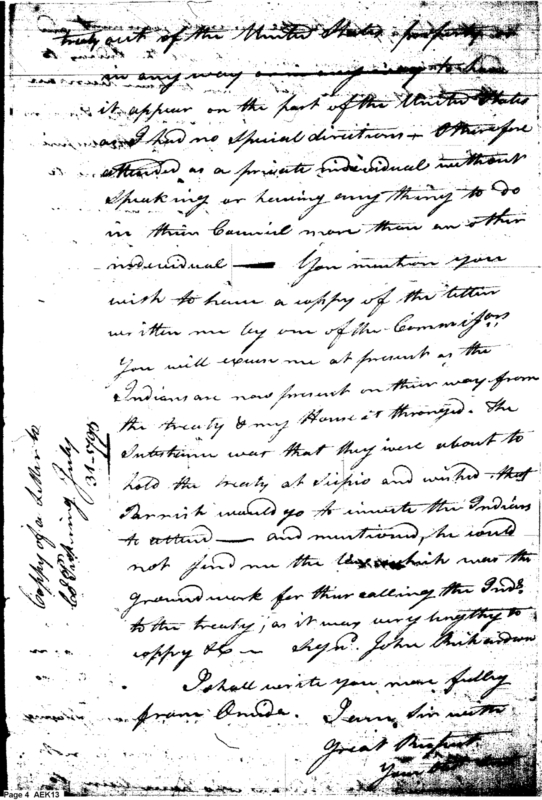 treaty out of the United States property or
in any way to have
it appear on the part of the United States
as I had no Special directions + Otherwise
attended as a private individual without
Speaking or having any thing to do
in their Council more than an other
individual — You mention you
wish to have a coppy of the letter
written me by one of the Commissrs,
You will excuse me at present as the
Indians are now present on their way from
the treaty & my House is thronged. The
was that they were about to
hold the treaty at Scipio and wished that
Parrish would go to invite the Indians
to attend — and mentioned, he would
not send me the which was the
groundwork for their calling the Inds.
to the treaty, as it was very lengthy to
coppy &c — Sign. John Richardson
I shall write you more fully
from Oneida. I am Sir with
Great Respect
Your
Coppy of a letter to
Col Pickering July
31-1795
Page 4 AEK13